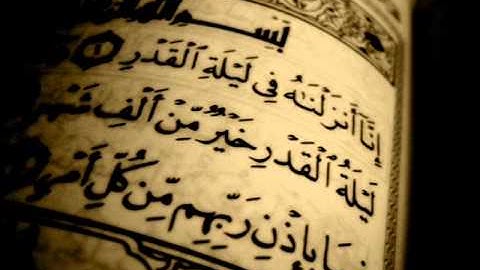 بِسْمِ
إِنَّآ أَنزَلْنَٰهُ فِى لَيْلَةِ ٱلْقَدْرِ ١
لَيْلَةُ ٱلْقَدْرِ خَيْرٌ مِّنْ أَلْفِ
بِإِذْنِ رَبِّهِم مِّن كُلِّ أَمْرٍ